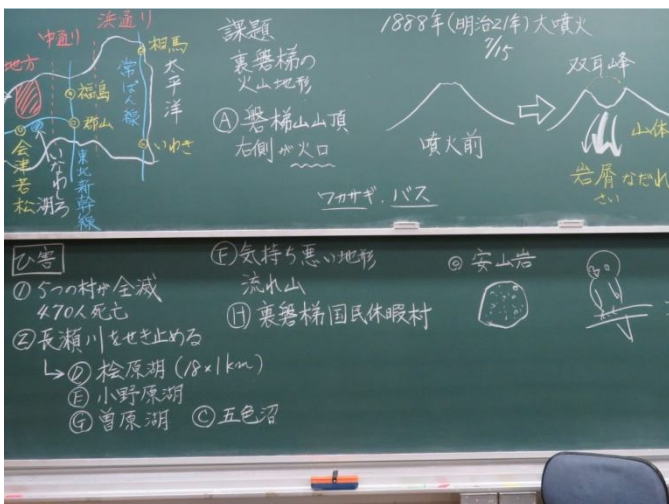 浜通り
中通り
地方
相馬
福島
郡山
いわき
常ばん線
太平洋
会津若松
いなわしろ湖
東北新幹線
課題
裏磐梯の
火山地形
Ⓐ 磐梯山山頂
右側が火口
1888年(明治21年)大噴火
7/15
噴火前
双耳峰
山体
岩屑なだれ
さい
ワカサギ、バス
ひ害
① 5つの村が全滅
470人死亡
② 長瀬川をせき止める
↳Ⓓ 桧原湖 (18×1km)
Ⓔ 小野原湖
Ⓖ 曽原湖 Ⓒ 五色沼
Ⓕ 気持ち悪い地形
流れ山
Ⓗ 裏磐梯国民休暇村
◎ 安山岩